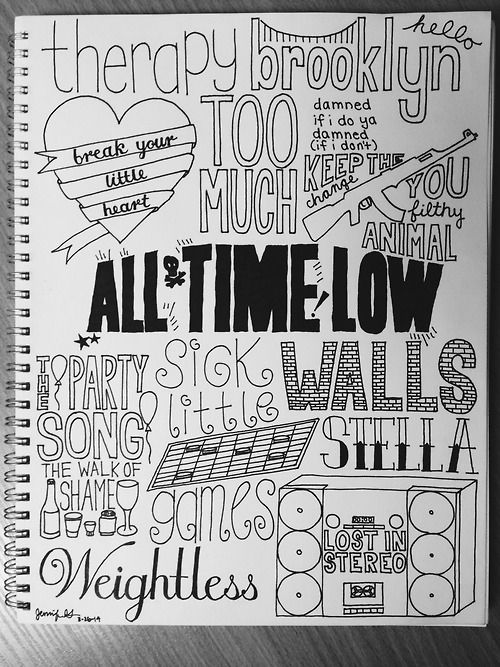 therapy
hello
brooklyn
break your
little
heart
TOO
MUCH
damned
if i do ya
damned
(if i don't)
KEEP THE
change
YOU
filthy
ANIMAL
ALL TIME LOW
THE PARTY
SONG
THE WALK OF
SHAME
sick
little
games
WALLS
STELLA
LOST IN
STEREO
Weightless
3-26-14